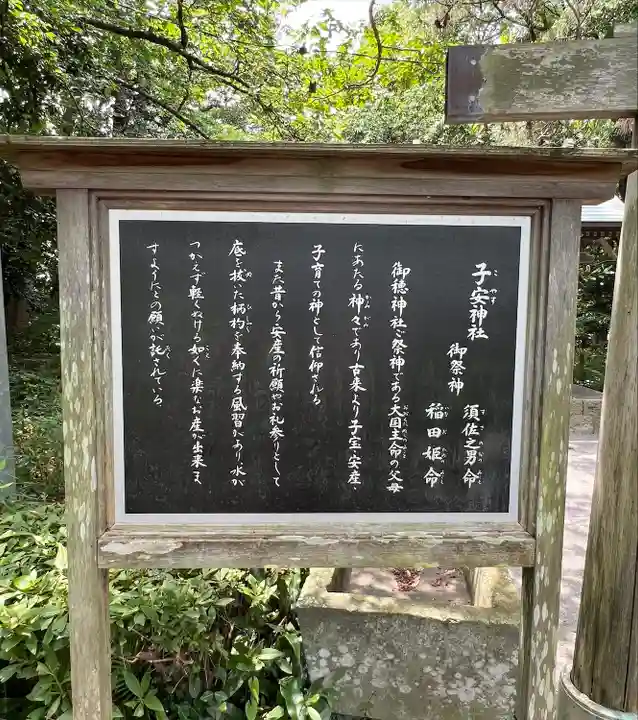 子安神社
御祭神 須佐之男命
稲田姫命
御穂神社ご祭神である大国主命の父母
にあたる神々であり古来より子宝・安産・
子育ての神として信仰される
また昔から安産の祈願やお礼参りとして
底を抜いた柄杓を奉納する風習があり水が
つかえず軽くぬける如くに楽なお産が出来ま
すようにとの願いが託されている